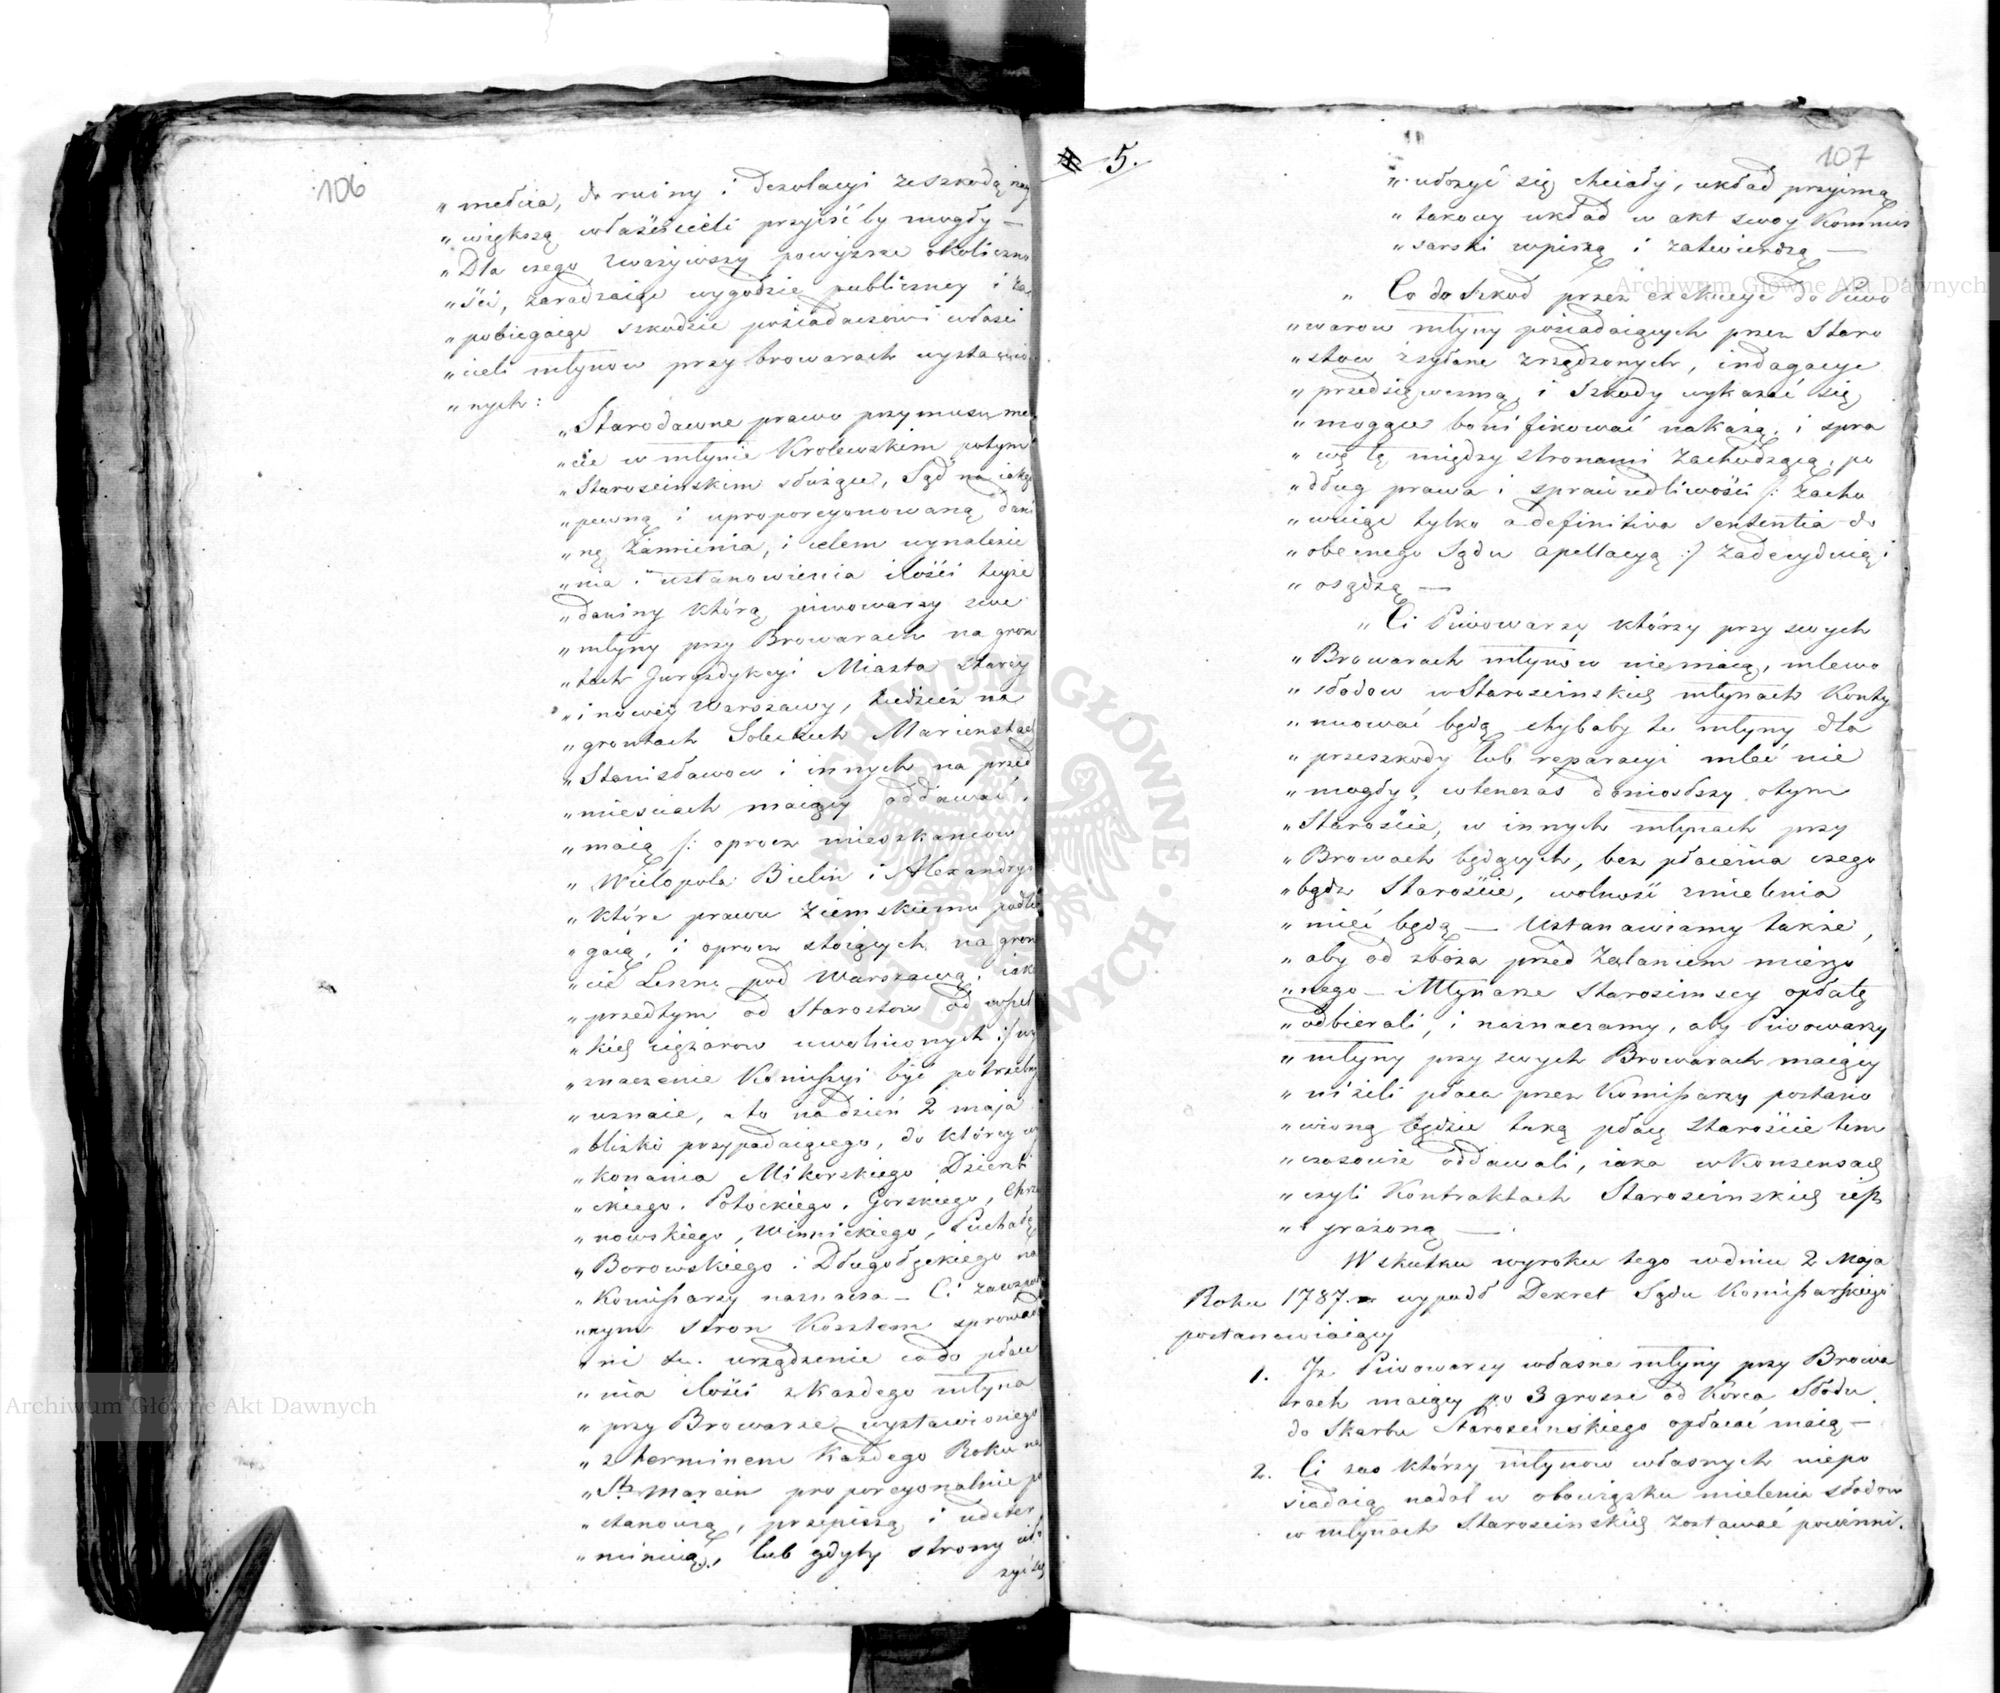 106
„ melcia, do ruiny i dezolacyi zeszkodą nay
„ większą właścicieli przyiść by mogły —
„ Dla czego zważywszy powyższe okoliczno
„ ści, zaradzaiąc wygodzie publiczney i za
„ pobiegaiąc szkodzie posiadaczów i właści
„ cieli młynow przy browarach wystawio
„ nych:
„ Starodawne prawo przymusu me
„ cie w młynie Krolewskim potym
„ Staroscinskim służące, Sąd na iakąś
„ pewną i uproporcyonowaną dani
„ nę zamienia, i celem wynalezie
„ nia i ustanowienia ilości teyże
„ daniny którą piwowarzy swe
„ młyny przy Browarach na gron
„ tach Jurysdykcyi Miasta Starey
„ i nowey Warszawy, tudzież na
„ grontach Soleckich Marienstad
„ Stanisławow i innych na przed
„ miesciach maiący oddawać
„ maią /: oprocz mieszkancow
„ Wielopola Bielin i Alexandryi
„ które prawu Ziemskiemu podle
„ gaią, i oprocz stoiących na gron
„ cie Leszna pod Warszawą, iako
„ przedtym od Starostow od wszel
„ kich ciężarow uwolnionych :/ wy
„ znaczenie Kommissyi być potrzebny
„ uznaie, a to na dzień 2 maja
„ blisko przypadaiącego, do którey wy
„ konania Mikorskiego Dzierzbi
„ ckiego, Potockiego, Gorskiego, Chrza
„ nowskiego, Winnickiego, Puchałę
„ Borowskiego i Długołęckiego na
„ Komissarzy naznacza — Ci zawza
„ nym stron Kosztem sprowadze
„ ni urządzenie co do płace
„ nia ilości z Każdego młyna
„ przy Browarze wystawionego
„ z terminem Każdego Roku na
„ St. Marcin proporcyonalnie po
„ stanowią, przepiszą i udeter
„ minuią, lub gdyby strony uło
żyć się
5.
107
„ ułożyć się chciały, układ przyimą
„ takowy układ w akt swoy Kommis
„ sarski wpiszą i zatwierdzą —
„ Co do Szkod przez exekucye do Piwo
„ warow młyny posiadaiących przez Staro
„ stow zsyłane zrządzonych, indagacye
„ przedsięwezmą, i Szkody wykazać się
„ mogące bonifikować nakażą, i spra
„ wę tę między stronami zachodzącą, po
„ dług prawa i sprawiedliwości /: zacho
„ wuiąc tylko a definitiva sententia do
„ obecnego Sądu apellacyą :/ zadecyduią i
„ osądzą —
„ Ci Piwowarzy którzy przy swych
„ Browarach młynow nie maią, mlewo
„ słodow w Staroscinskich młynach Konty
„ nuować będą chybaby te młyny dla
„ przeszkody lub reparacyi mleć nie
„ mogły, wtenczas doniosłszy o tym
„ Starościie, w innych młynach przy
„ Browach będących, bez płacenia czego
„ bądz Starościie, wolność zmielenia
„ mieć będą — Ustanawiamy także,
„ aby od zboża przed Zalaniem mierzo
„ nego — Młynarze Staroscinscy opłatę
„ odbierali, i naznaczamy, aby Piwowarzy
„ młyny przy swych Browarach maiący
„ niżeli płaca przez Komissarzy postano
„ wioną będzie taką płacę Starościie tem
„ czasowie oddawali, iaka w Konsensach
„ czyli Kontraktach Staroscinskich iest
„ wyrażoną —.
W skutku wyroku tego w dniu 2 Maja
Roku 1787. wypadł Dekret Sądu Komissarskiego
postanawiaiący
1. Iż Piwowarzy własne młyny przy Browa
rach maiący po 3 grosze od Korca Słodu
do Skarbu Staroscinskiego opłacać maią —
2. Ci zas którzy młynow własnych niepo
siadaią nadal w obowiązku mielenia słodow
w młynach Staroscinskich zostawać powinni.
Archiwum Główne Akt Dawnych
Archiwum Główne Akt Dawnych
ARCHIWUM GŁÓWNE AKT DAWNYCH